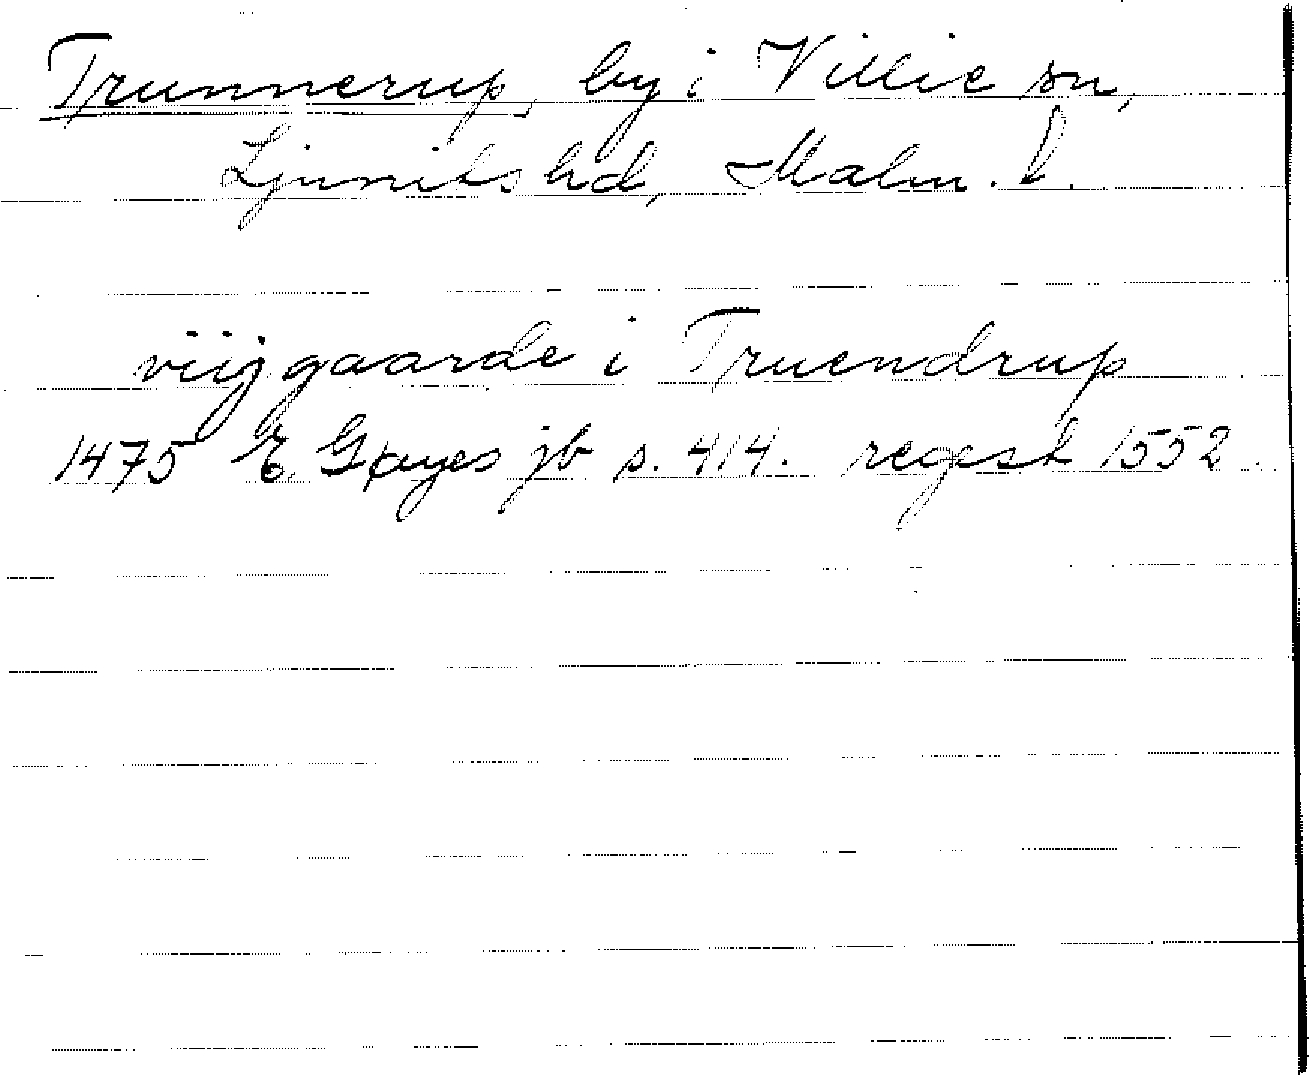 Trunnerup, by i Villie sn,
Ljunits hd, Malm. l.
viij gaarde i Truendrup
1475 E. Gøyes jb s. 414. regest 1552